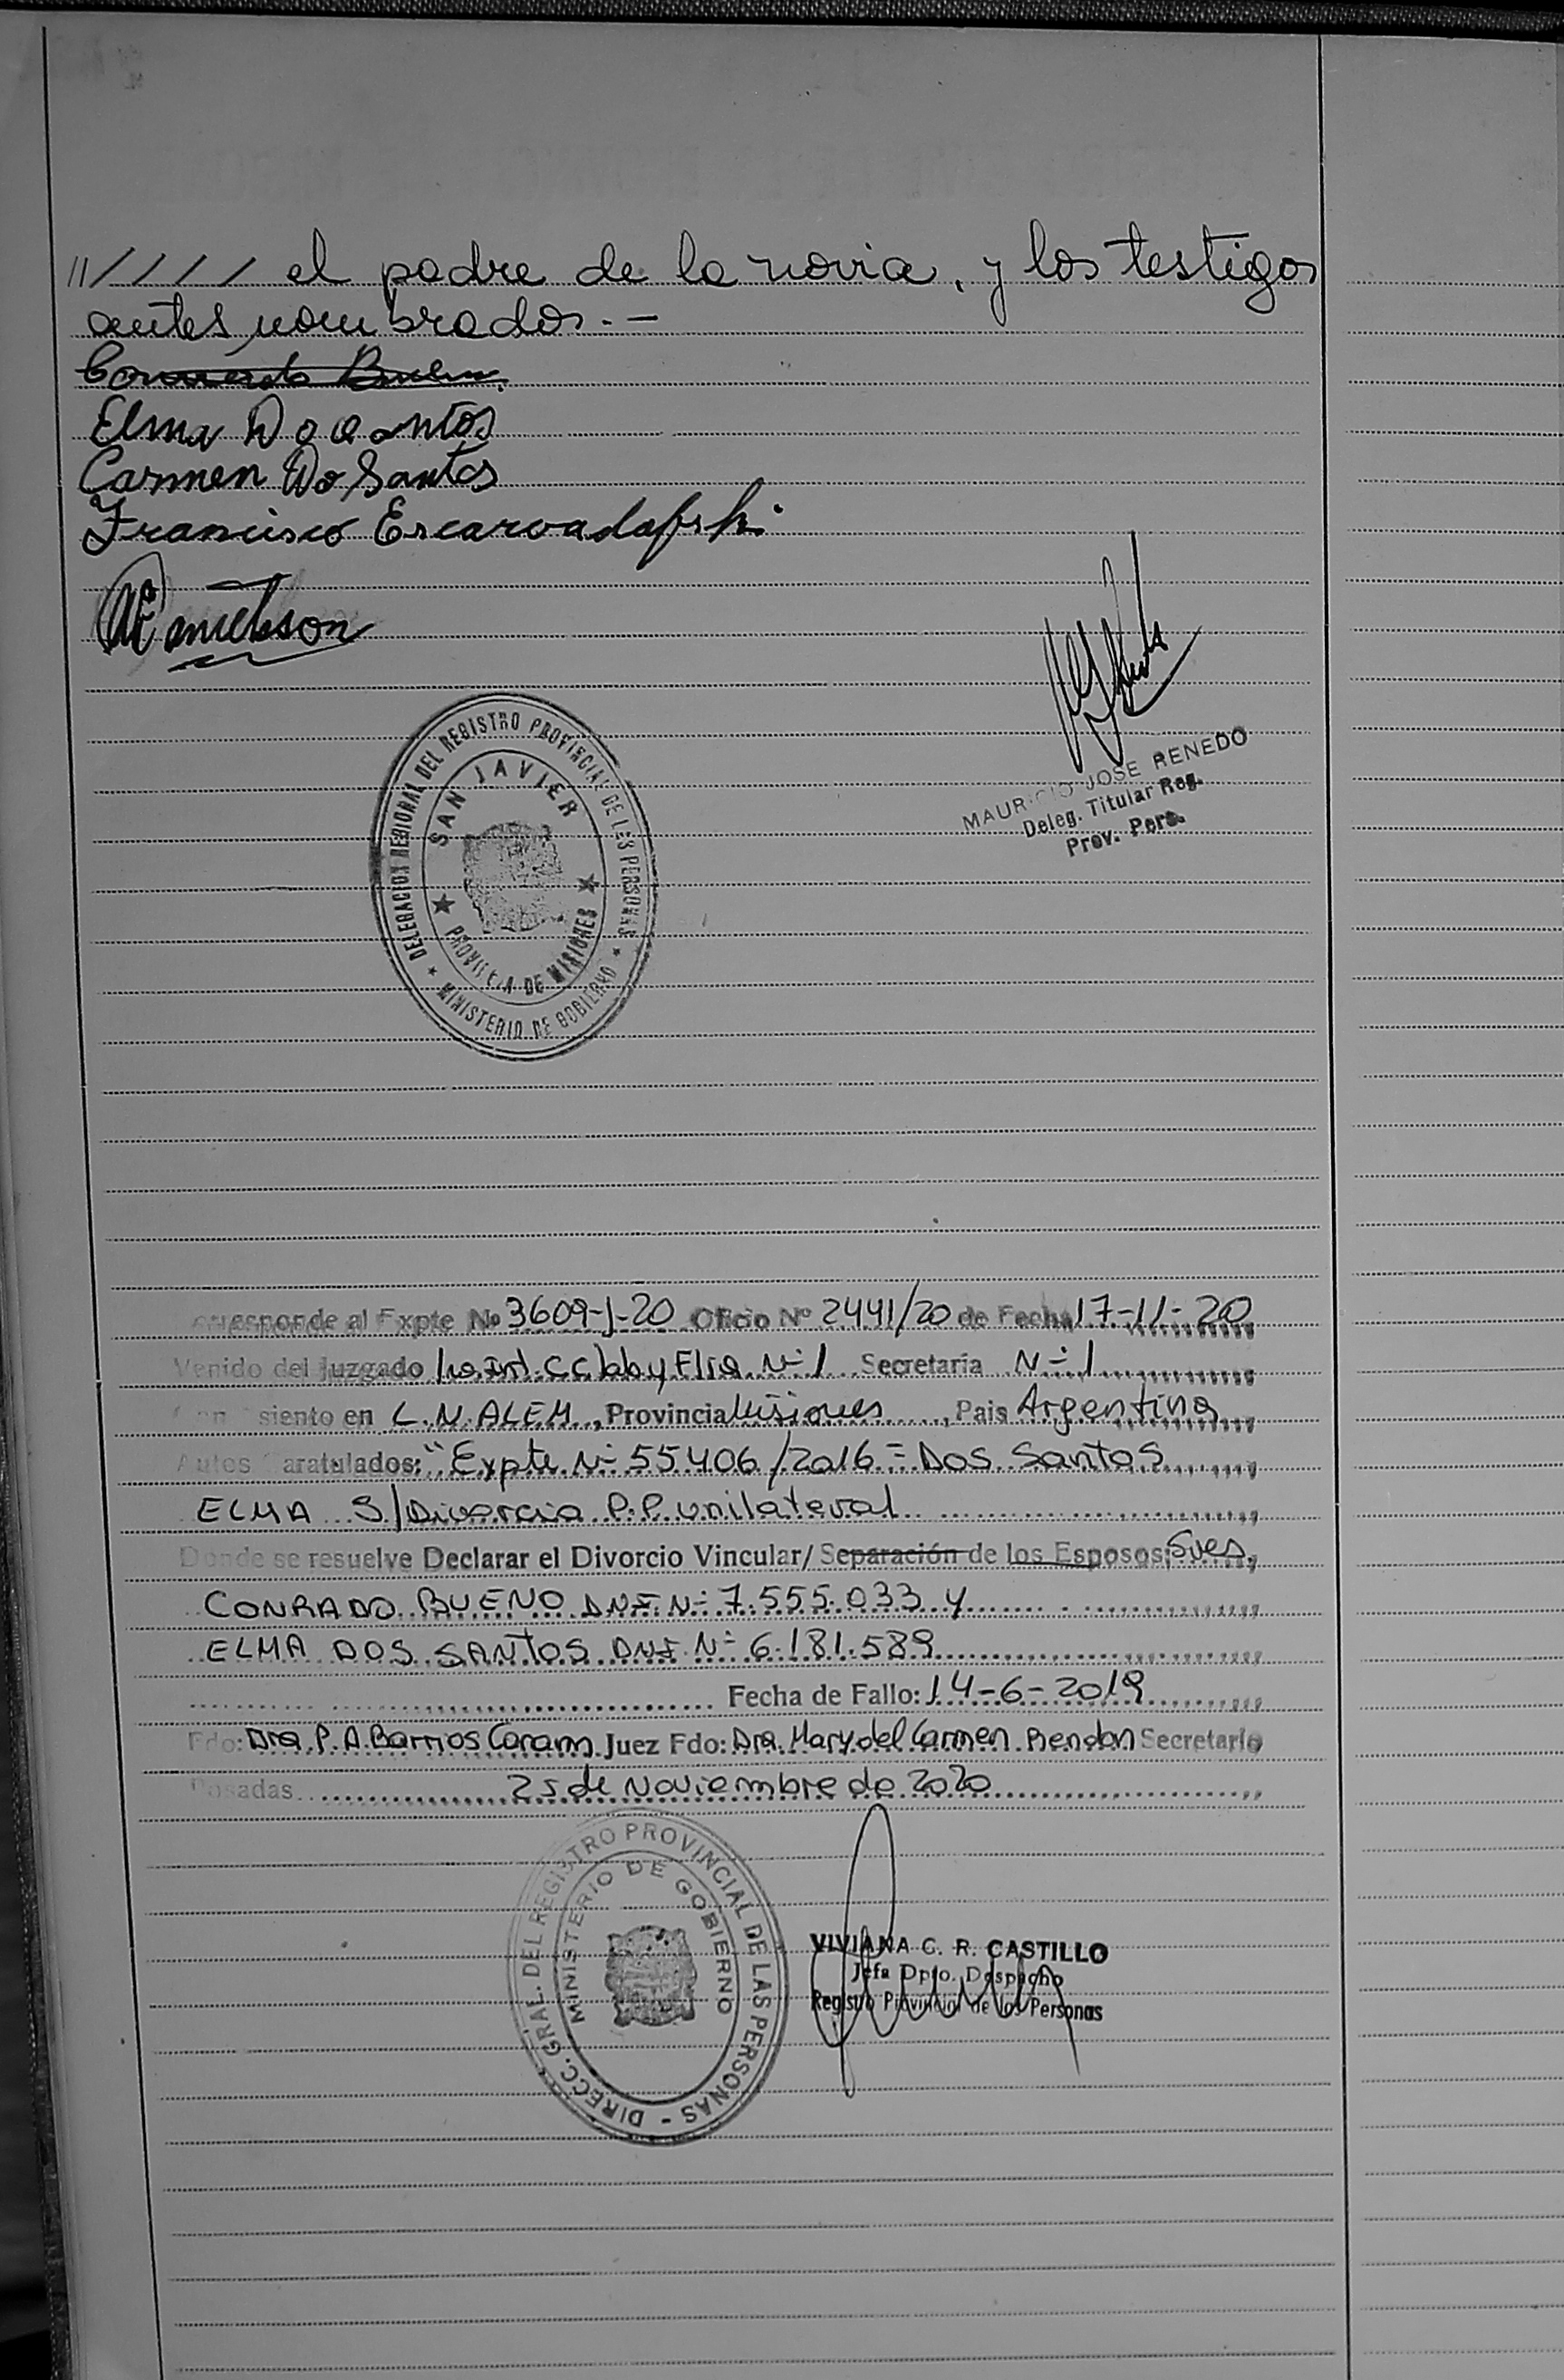 11///// el padre de la novia, y los testigos
antes nombrados.-
Elma Do
Carmen Do Santos
Francisco
DELEGACION REGIONAL DEL REGISTRO PROVINCIAL DE LES PERSONAS
★ MINISTERIO DE GOBIERNO ★
SAN JAVIER
★ PROVINCIA DE MISIONES ★
MAURICIO JOSE RENEDO
Deleg. Titular Reg.
Prov. Pers.
Corresponde al Expte No 3609-J-20 Oficio Nº 2441/20 de Fecha 17-11-20
Venido del Juzgado N-1 Secretaría N-1
Con asiento en L.N. ALEM, Provincia Misiones, Pais Argentina
Autos Caratulados: "Expte N- 55406/2016 = Dos Santos
ELMA S/Divorcio P.P. unilateral
Donde se resuelve Declarar el Divorcio Vincular/ Separación de los Esposos: Sres.
CONRADO BUENO DNI N- 7.555.033 y
ELMA DOS SANTOS DNI N- 6.181.589
Fecha de Fallo: 14-6-2019
Fdo: Dra P. A. Barrios Caram Juez Fdo: Dra. Mary del Carmen Rendon Secretario
Posadas 25 de Noviembre de 2020
DIRECC. GRAL. DEL REGISTRO PROVINCIAL DE LAS PERSONAS -
MINISTERIO DE GOBIERNO
VIVIANA C. R. CASTILLO
Jefa Dpto. Despacho
Registro Provincial de las Personas